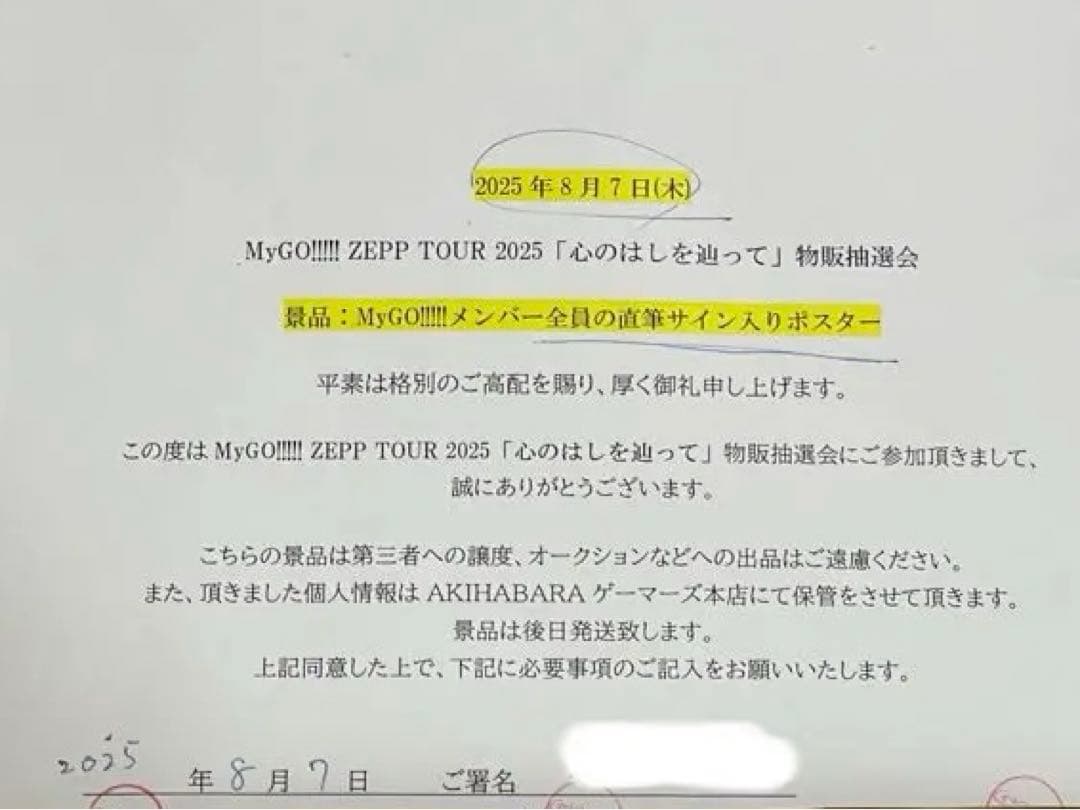 2025年8月7日(木)
MyGO!!!!! ZEPP TOUR 2025「心のはしを辿って」物販抽選会
景品：MyGO!!!!!メンバー全員の直筆サイン入りポスター
平素は格別のご高配を賜り、厚く御礼申し上げます。
この度は MyGO!!!!! ZEPP TOUR 2025「心のはしを辿って」物販抽選会にご参加頂きまして、
誠にありがとうございます。
こちらの景品は第三者への譲度、オークションなどへの出品はご遠慮ください。
また、頂きました個人情報は AKIHABARA ゲーマーズ本店にて保管をさせて頂きます。
景品は後日発送致します。
上記同意した上で、下記に必要事項のご記入をお願いいたします。
2025 年 8 月 7 日 ご署名